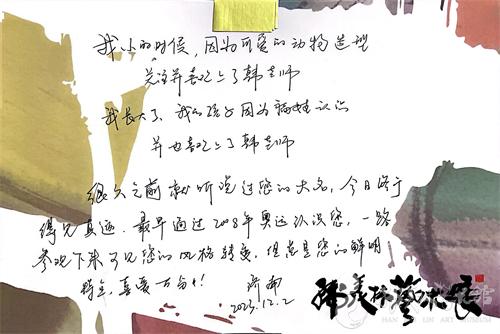 我小的时候，因为可爱的动物造型
关注并喜欢上了韩老师
我长大了，我的孩子因为福娃认识
并也喜欢上了韩老师
很久之前就听说过您的大名，今日终于
得见真迹。最早通过2008年奥运认识您，一路
参观下来可见您的风格转变，但总是您的鲜明
特色，喜爱万分！！
济南
2023.12.2
韩美林艺术展